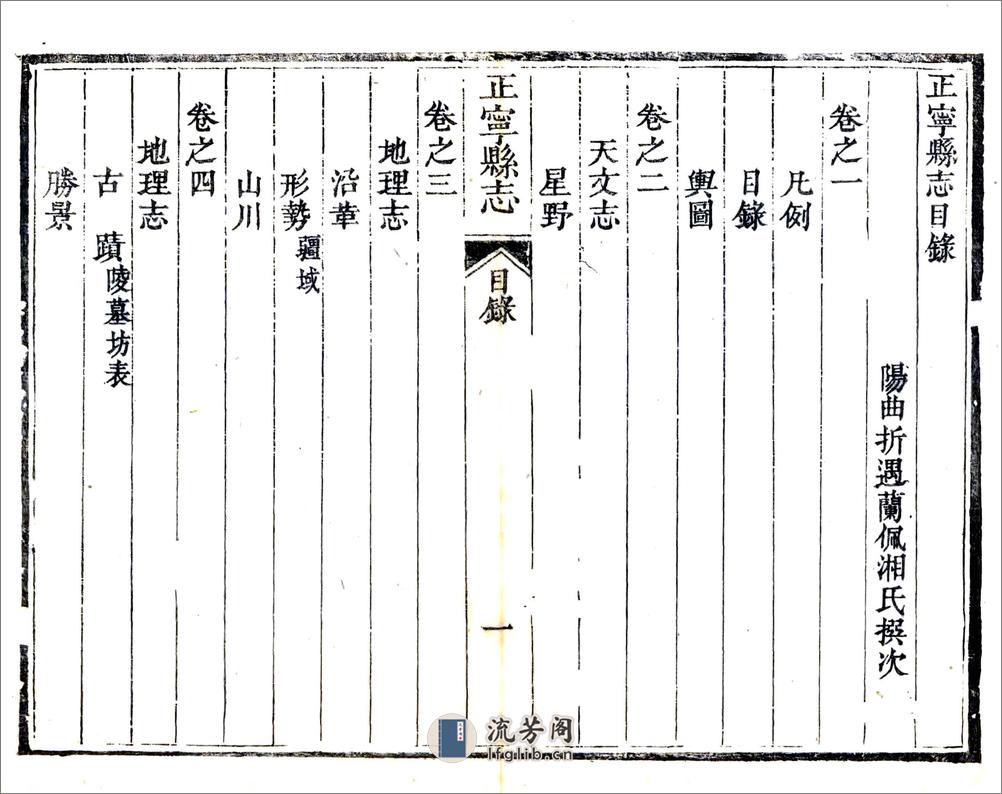 正寧縣志目錄
陽曲折遇蘭佩湘氏撰次
卷之一
凡例
目錄
輿圖
卷之二
天文志
星野
正寧縣志
目錄
一
卷之三
地理志
沿革
形勢疆域
山川
卷之四
地理志
古蹟陵墓坊表
勝景
流芳阁
lfglib.cn